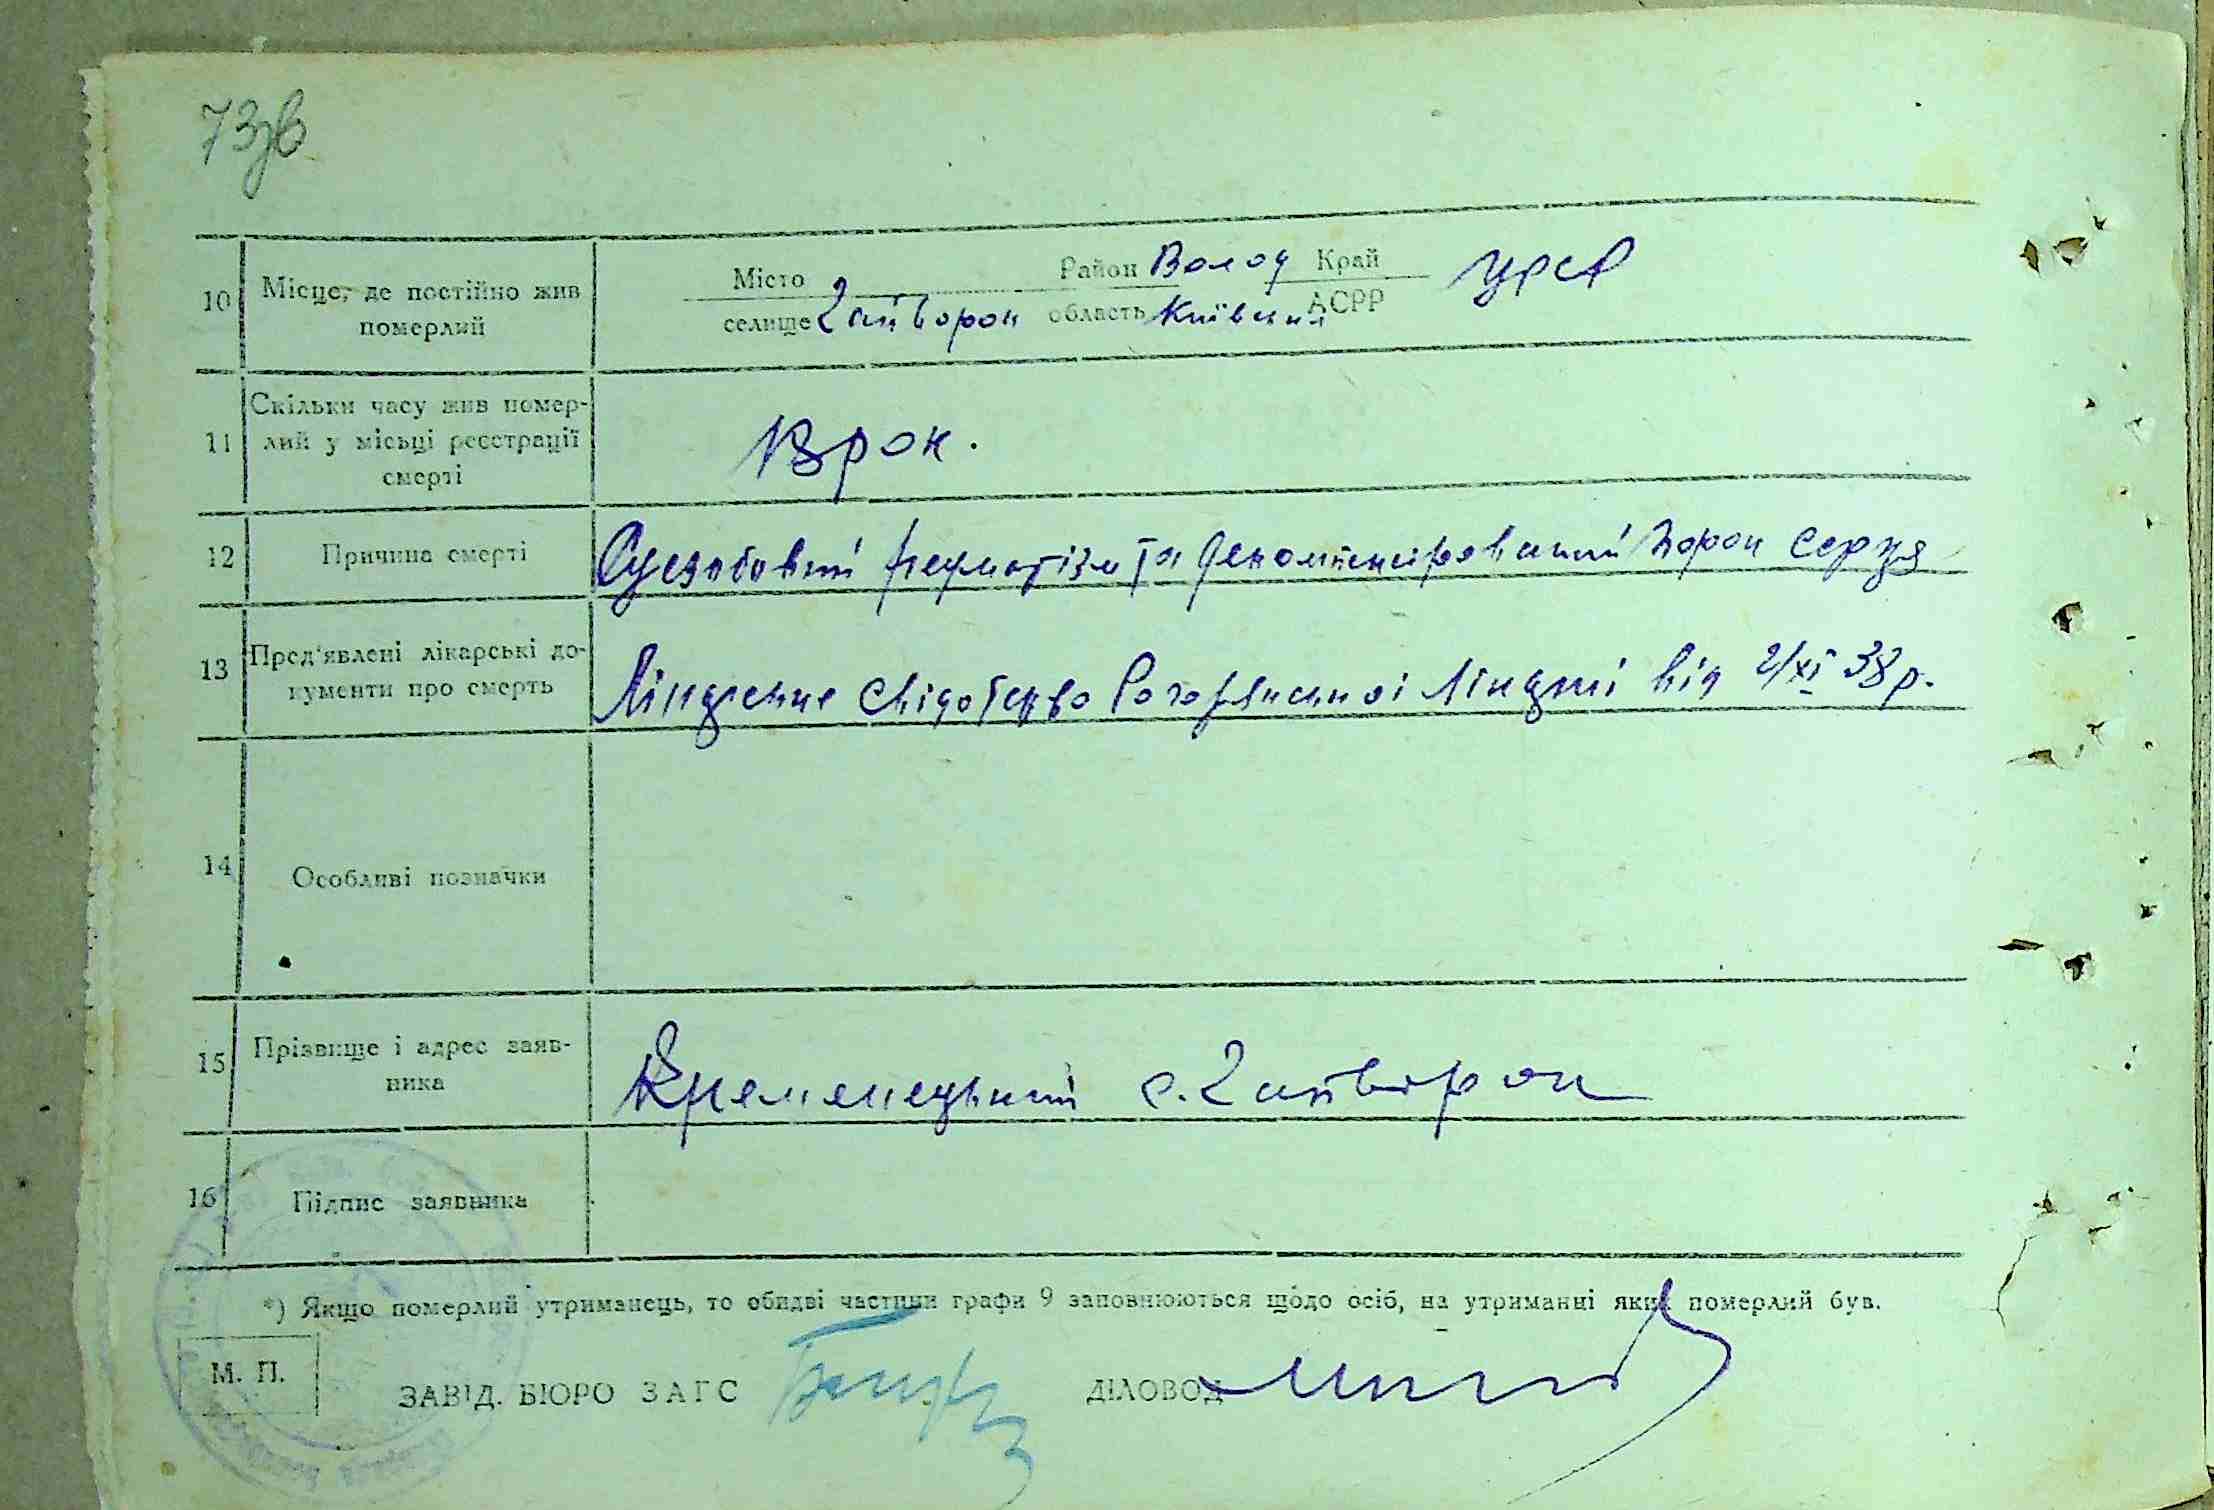 73зв
10 Місце, де постійно жив померлий
Місто
селище Гайворон
Район Волод
область Київський
Край
АСРР
УРСР
11 Скільки часу жив помер-
лий у місьці реєстрації
смерті
рок.
12 Причина смерті
Суставовий ревматізм та декомпенсірований порок серця
13 Пред'явлені лікарські до-
кументи про смерть
Лікарське свідотство лікарні від 2/XI 38 р.
14 Особливі позначки
15 Прізвище і адрес заяв-
ника
Кременецький с. Гайворон
16 Підпис заявника
*) Якщо померлий утриманець, то обидві частини графи 9 заповнюються щодо осіб, на утриманні яких померлий був.
М. П.
ЗАВІД. БЮРО ЗАГС
ДІЛОВОД